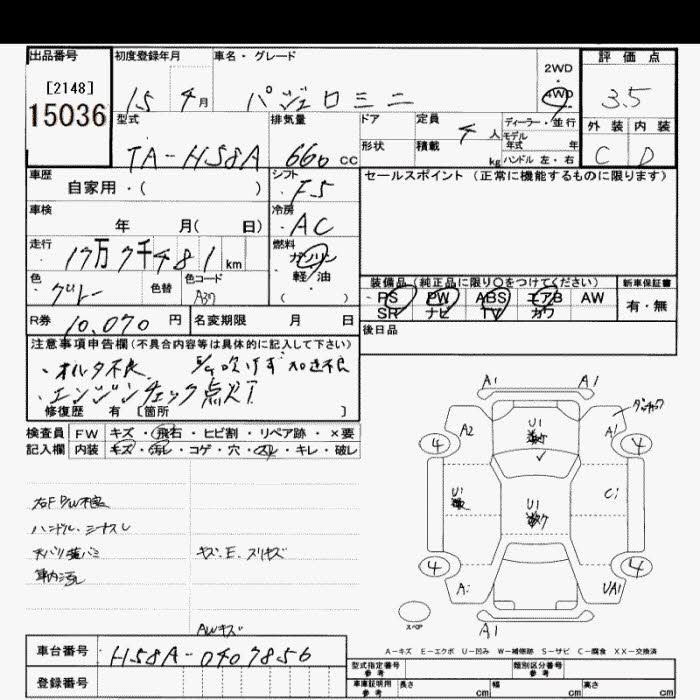 出品番号
[2148]
15036
初度登録年月
15 4月
車名・グレード
パジェロミニ
2WD
4WD
評価点
3.5
外装 内装
C D
型式
TA-H58A
排気量
660 cc
ドア
形状
定員
4 人
積載
kg
ディーラー・並行
モデル年式 年
ハンドル 左・右
車歴
自家用・( )
シフト
F5
セールスポイント(正常に機能するものに限ります)
車検
年 月( 日)
冷房
AC
走行
17万7千481 km
燃料
ガソリン
軽・油
( )
色
グレー
色替
色コード
A37
装備品(純正品に限り○をつけてください)
PS PW ABS エアB AW
SR ナビ TV カワ
新車保証書
有・無
R券 10,070 円
名変期限 月 日
後日品
注意事項申告欄(不具合内容等は具体的に記入して下さい)
・オルタ不良 E/g吹けず 加速不良
・エンジンチェック点灯
修復歴 有 [箇所 ]
検査員 FW キズ・飛石・ヒビ割・リペア跡・×要
記入欄 内装 キズ・汚レ・コゲ・穴・スレ・キレ・破レ
右F P/W不良
ハンドル・シートスレ
天バリ
車内汚レ
キズ.E.スリキズ
AWキズ
A1 A1
A2 U1 A1
4 4
U1 U1 C1
4 4
A1 UA1
A1
スペア
A-キズ E-エクボ U-凹み W-補修跡 S-サビ C-腐食 XX-交換済
車台番号 H58A-0407856
登録番号
型式指定番号 参考
類別区分番号 参考
車庫証明用 参考
長さ cm
幅 cm
高さ cm